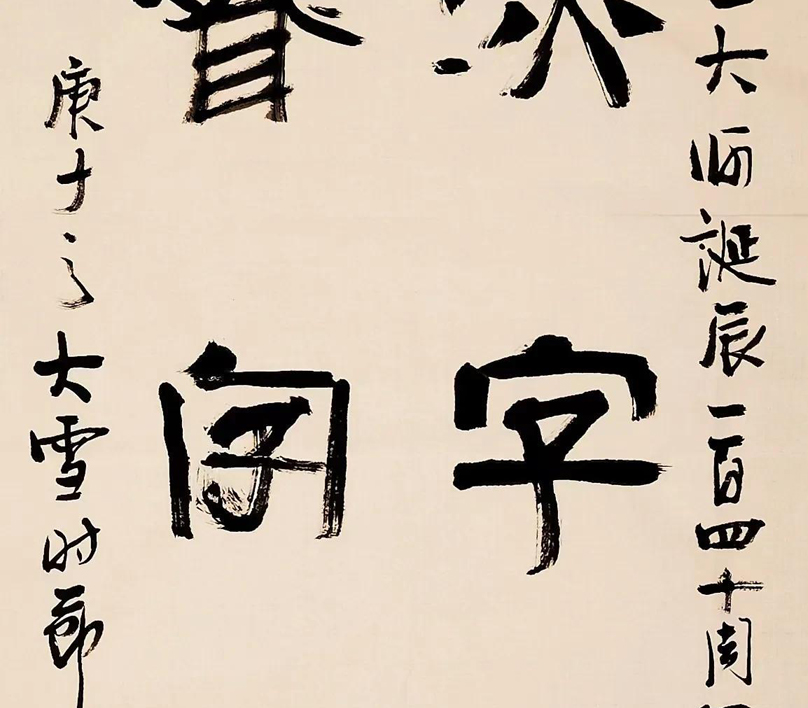 大师诞辰一百四十周
字
字
庚子之大雪时節